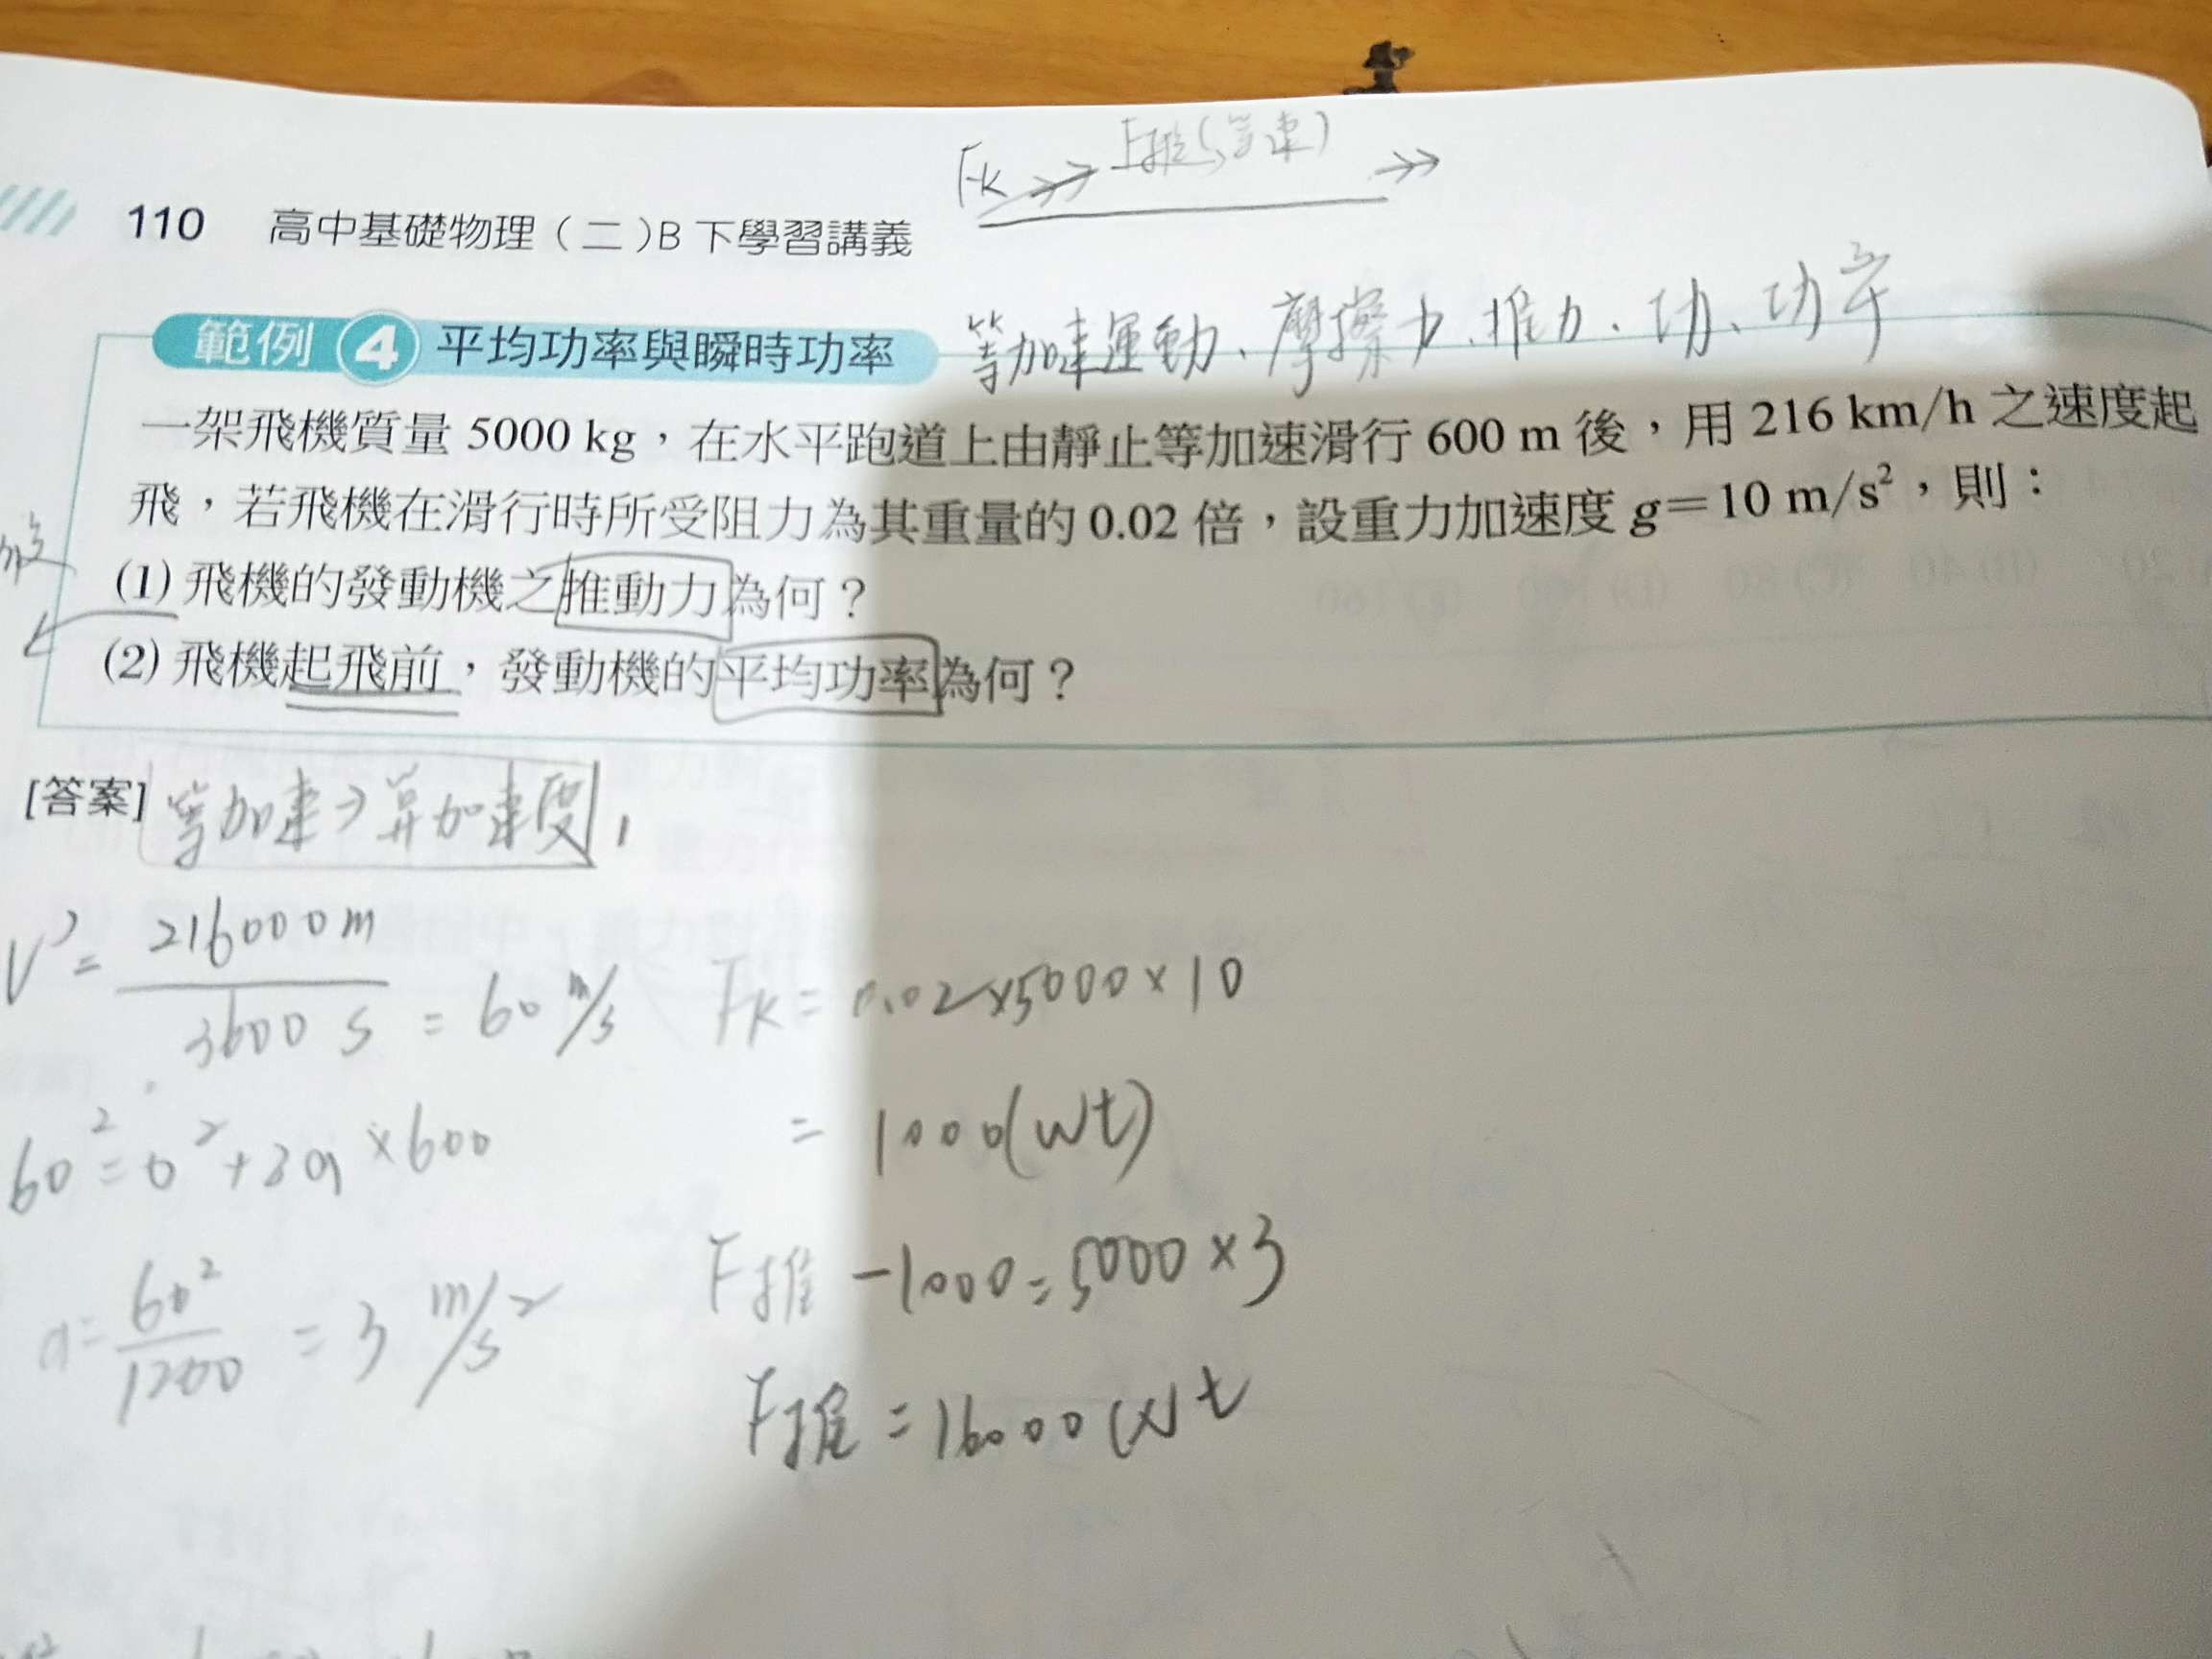 Fk F推(等速)
110 高中基礎物理(二)B 下學習講義
範例 4 平均功率與瞬時功率 等加速運動、摩擦力、推力、功、功率
一架飛機質量 5000 kg,在水平跑道上由靜止等加速滑行 600 m 後,用 216 km/h 之速度起
飛,若飛機在滑行時所受阻力為其重量的 0.02 倍,設重力加速度 g=10 m/s²,則:
(1) 飛機的發動機之推動力為何?
(2) 飛機起飛前,發動機的平均功率為何?
[答案] 等加速→算加速度,
216000m
3600 s = 60 m/s
Fk = 0.02×5000×10
= 1000(wt)
60² = 0² + 2a × 600
F推 -1000 = 5000 × 3
a = 60²/1200 = 3 m/s²
F推 = 16000 (wt